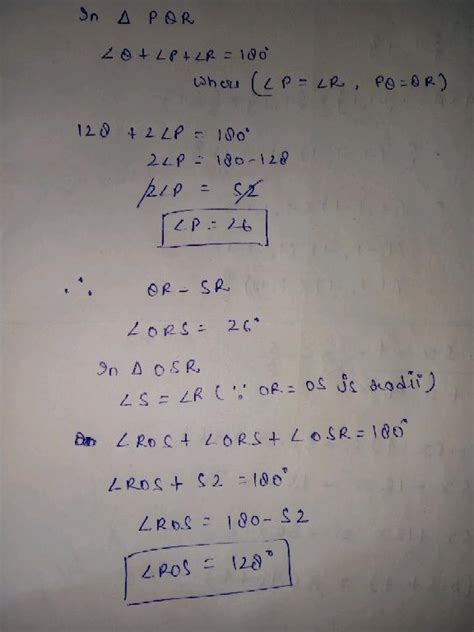 In Δ PQR
∠Q + ∠P + ∠R = 180°
where (∠P = ∠R, PQ = QR)
128 + 2∠P = 180°
2∠P = 180 - 128
2∠P = 52
∠P = 26
∴ QR = SR
∠ORS = 26°
In Δ OSR
∠S = ∠R (∵ OR = OS is radii)
∠ROS + ∠ORS + ∠OSR = 180°
∠ROS + 52 = 180°
∠ROS = 180 - 52
∠ROS = 128°